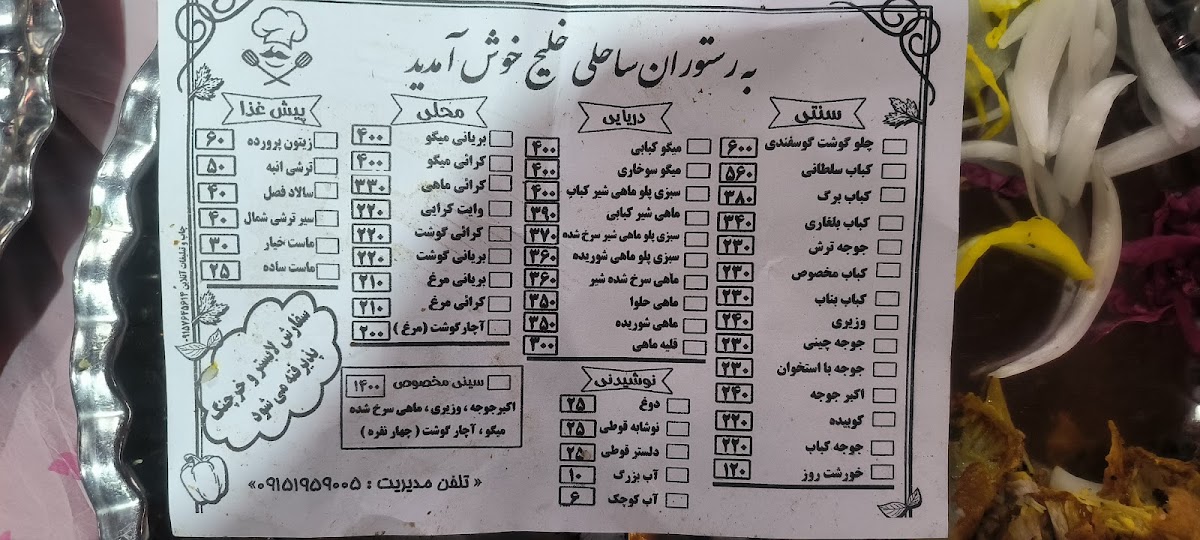 به رستوران ساحلی خلیج خوش آمدید
سنتی
چلو گوشت گوسفندی ۶۰۰
کباب سلطانی ۵۶۰
کباب برگ ۳۸۰
کباب بلغاری ۳۴۰
جوجه ترش ۲۳۰
کباب مخصوص ۲۳۰
کباب بناب ۲۳۰
وزیری ۲۴۰
جوجه چینی ۲۳۰
جوجه با استخوان ۲۳۰
اکبر جوجه ۲۴۰
کوبیده ۲۲۰
جوجه کباب ۲۲۰
خورشت روز ۱۲۰
دریایی
میگو کبابی ۴۰۰
میگو سوخاری ۴۰۰
سبزی پلو ماهی شیر کباب ۴۰۰
ماهی شیر کبابی ۳۹۰
سبزی پلو ماهی شیر سرخ شده ۳۷۰
سبزی پلو ماهی شوریده ۳۶۰
ماهی سرخ شده شیر ۳۶۰
ماهی حلوا ۳۵۰
ماهی شوریده ۳۵۰
قلیه ماهی ۳۰۰
نوشیدنی
دوغ ۲۵
نوشابه قوطی ۲۵
دلستر قوطی ۲۵
آب بزرگ ۱۰
آب کوچک ۶
محلی
بریانی میگو ۴۰۰
کرائی میگو ۴۰۰
کرائی ماهی ۳۳۰
وایت کرایی ۲۲۰
کرائی گوشت ۲۲۰
بریانی گوشت ۲۲۰
بریانی مرغ ۲۱۰
کرائی مرغ ۲۱۰
آچارگوشت (مرغ) ۲۰۰
سینی مخصوص ۱۴۰۰
اکبرجوجه ، وزیری ، ماهی سرخ شده
میگو ، آچار گوشت ( چهار نفره )
پیش غذا
زیتون پرورده ۶۰
ترشی انبه ۵۰
سالاد فصل ۴۰
سیر ترشی شمال ۴۰
ماست خیار ۳۰
ماست ساده ۲۵
سفارش لابستر و خرچنگ
پذیرفته می شود
« تلفن مدیریت : ۰۹۱۵۱۹۵۹۰۰۵»
چاپ و تبلیغات آنلاین ۰۹۱۵۷۶۴۵۶۱۴